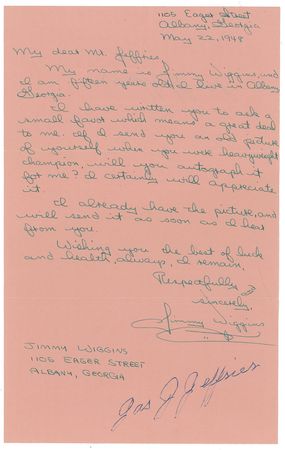 1105 Eager Street
Albany, Georgia
May 22, 1948
My dear Mr. Jeffries:
My name is Jimmy Wiggins, and
I am fifteen years old. I live in Albany
Georgia.
I have written you to ask a
small favor which means a great deal
to me. If I send you an old picture
of yourself when you were heavyweight
champion, will you autograph it
for me? I certainly will appreciate
it.
I already have the picture, and
will send it as soon as I hear
from you.
Wishing you the best of luck
and health, always, I remain,
Respectfully
sincerely,
Jimmy Wiggins
JIMMY WIGGINS
1105 EAGER STREET
ALBANY, GEORGIA
Jas J Jeffries